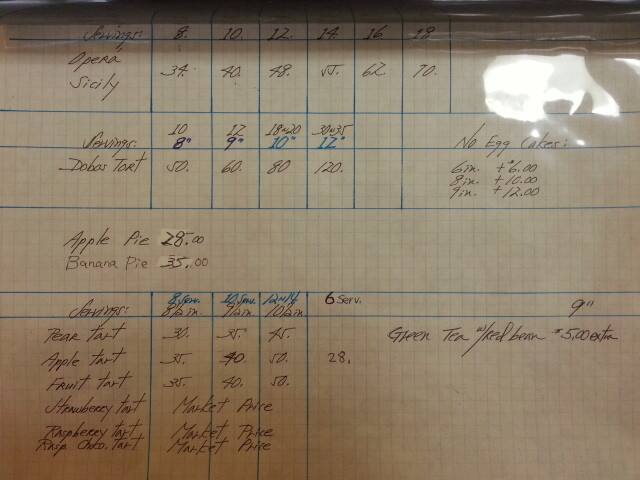 Servings: 8. 10. 12. 14. 16 18
Opera
Sicily 34. 40. 48. 55. 62. 70.
10 12 18~20 30~35
Servings: 8" 9" 10" 12" No Egg Cakes:
Dobos Tort 50. 60. 80 120. 6in. +$6.00
8in. +10.00
9in. +12.00
Apple Pie 28.00
Banana Pie 35.00
8 Serv. 10 Serv. 12~14 6 Serv.
Servings: 8½in. 9½in. 10½in. 9"
Pear tart 30. 35. 45. Green Tea w/red bean $5.00 extra
Apple tart 35. 40 50. 28.
Fruit tart 35. 40. 50.
Strawberry tart Market Price
Raspberry tart Market Price
Rasp Choco. Tart Market Price